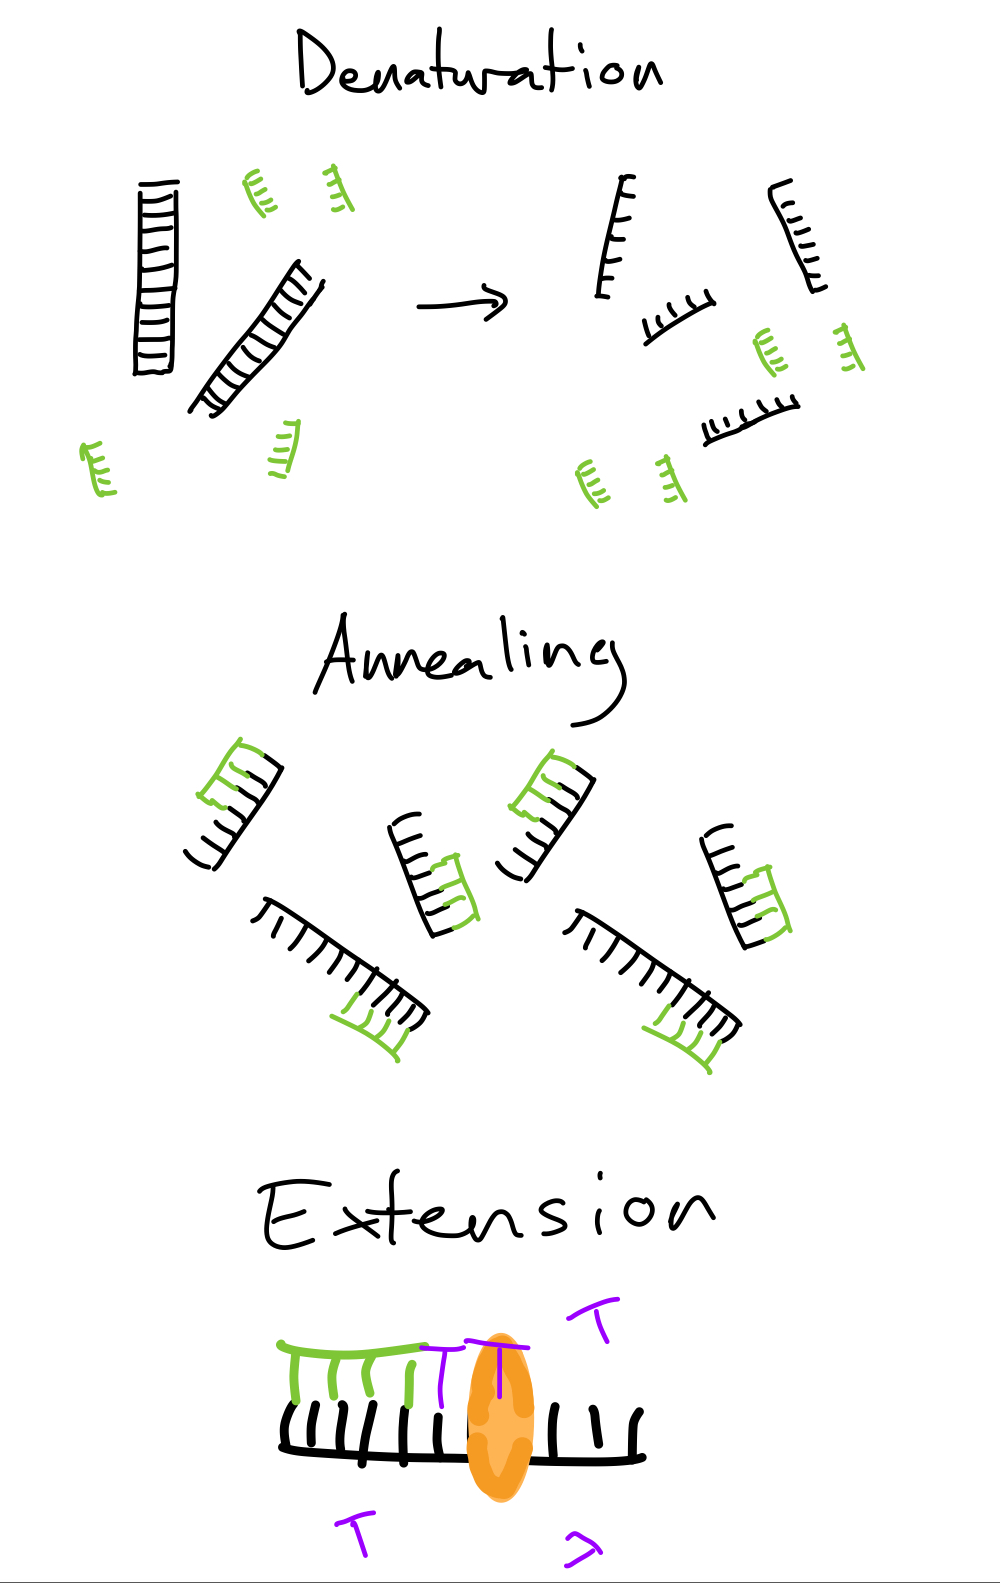 Denaturation
Annealing
Extension